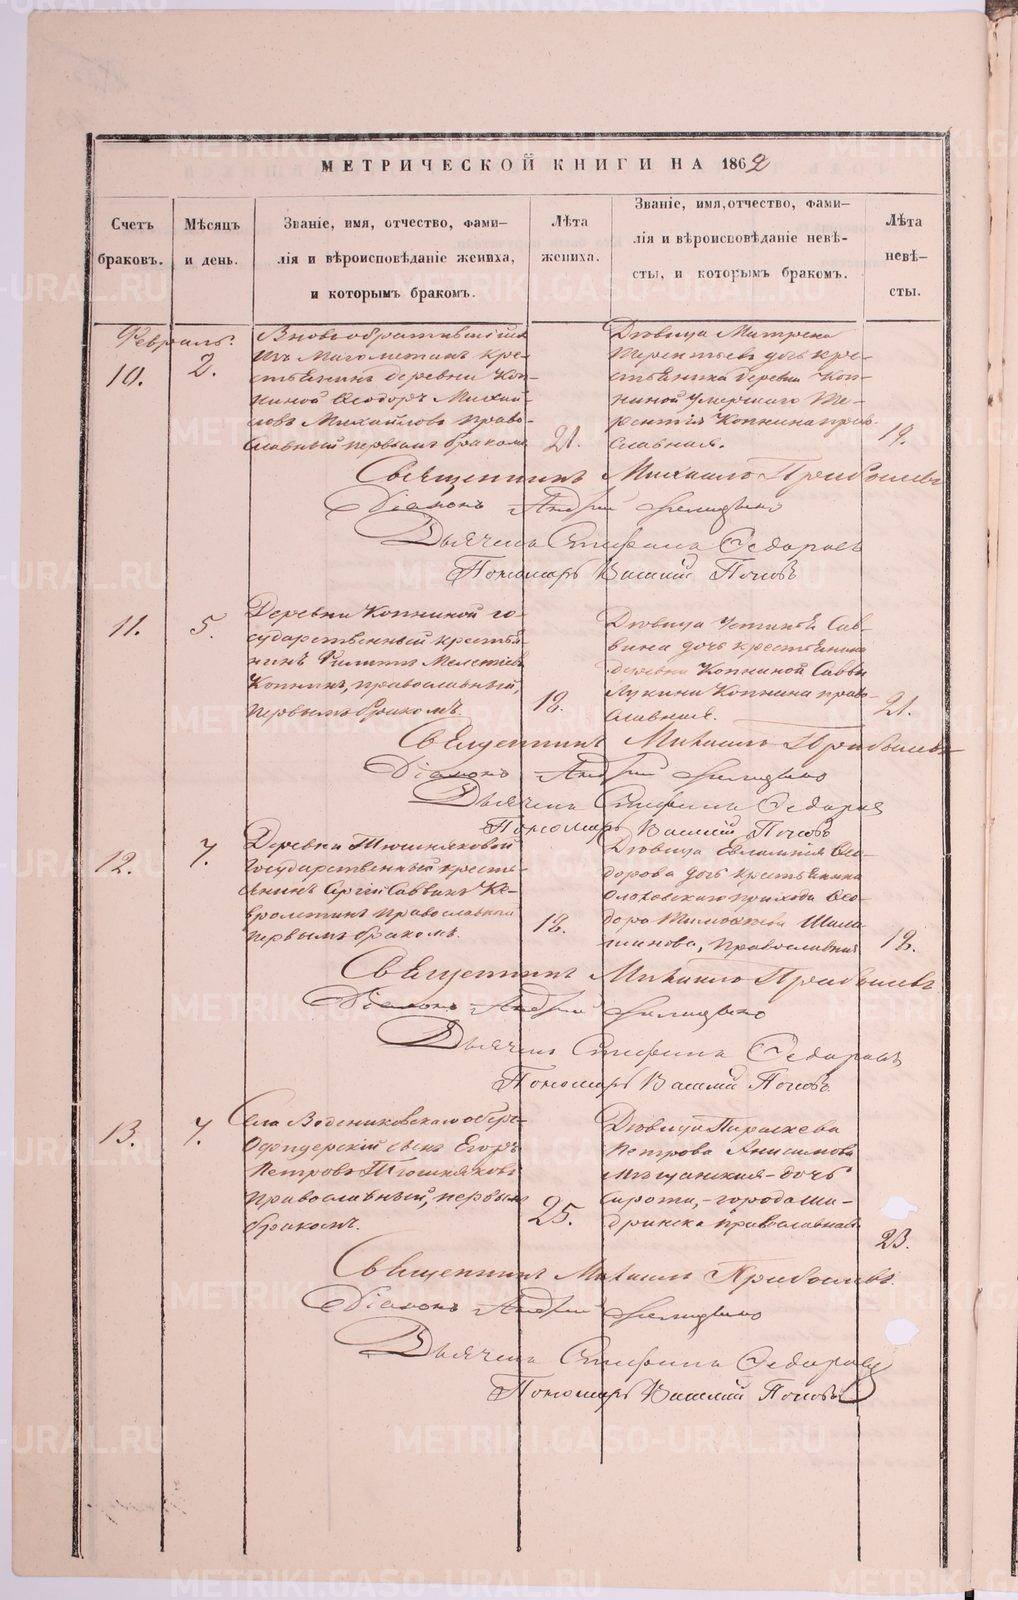 МЕТРИЧЕСКОЙ КНИГИ НА 1862
Счетъ
браковъ.
Мѣсяцъ
и день.
Званіе, имя, отчество, фами-
лія и вѣроисповѣданіе жениха,
и которымъ бракомъ.
Лѣта
жениха.
Званіе, имя, отчество, фами-
лія и вѣроисповѣданіе невѣ-
сты, и которымъ бракомъ.
Лѣта
невѣ-
сты.
Февраль.
10.
2.
Вновьобратившійся
изъ Магометанъ кре-
стьянинъ деревни Коп-
ниной Ѳеодоръ Михай-
ловъ Михайловъ право-
славный первымъ бракомъ
21.
Дѣвица Матрена
Терентьева дочь кре-
стьянина деревни Коп-
ниной умершаго Те-
рентія Копнина прав-
славная.
19.
Священникъ Михаилъ Прибылевъ
Діаконъ Андрей
Дьячекъ Стефанъ Федоровъ
Пономарь Василій Поповъ
11.
5.
Деревни Копниной го-
сударственный крестья-
нинъ Филиппъ Мелетіевъ
Копнинъ, православный,
первымъ бракомъ.
18.
Дѣвица Устинья Сав-
вина дочь крестьянина
деревни Копниной Саввы
Лукина Копнина право-
славная.
21.
Священникъ Михаилъ Прибылевъ
Діаконъ Андрей
Дьячекъ Стефанъ Федоровъ
Пономарь Василій Поповъ
12.
7.
Деревни Тюшняковой
государственный кресть-
янинъ Сергій Саввинъ Ке-
вролетинъ православный
первымъ бракомъ.
18.
Дѣвица Евлампія Ѳео-
дорова дочь крестьянина
прихода Ѳео-
дора Тимофѣева Шала-
шинова, православная
18.
Священникъ Михаилъ Прибылевъ
Діаконъ Андрей
Дьячекъ Стефанъ Федоровъ
Пономарь Василій Поповъ
13.
7.
Села Воденниковскаго оберъ-
Офицерскій сынъ Егоръ
Петровъ Тюшняковъ
православный, первымъ
бракомъ.
25.
Дѣвица Параскева
Петрова Анисимова
Мѣщанская дочь
сирота, города Ша-
дринска православная
23.
Священникъ Михаилъ Прибылевъ.
Діаконъ Андрей
Дьячекъ Стефанъ Федоровъ
Пономарь Василій Поповъ
METRIKI.GASO-URAL.RU